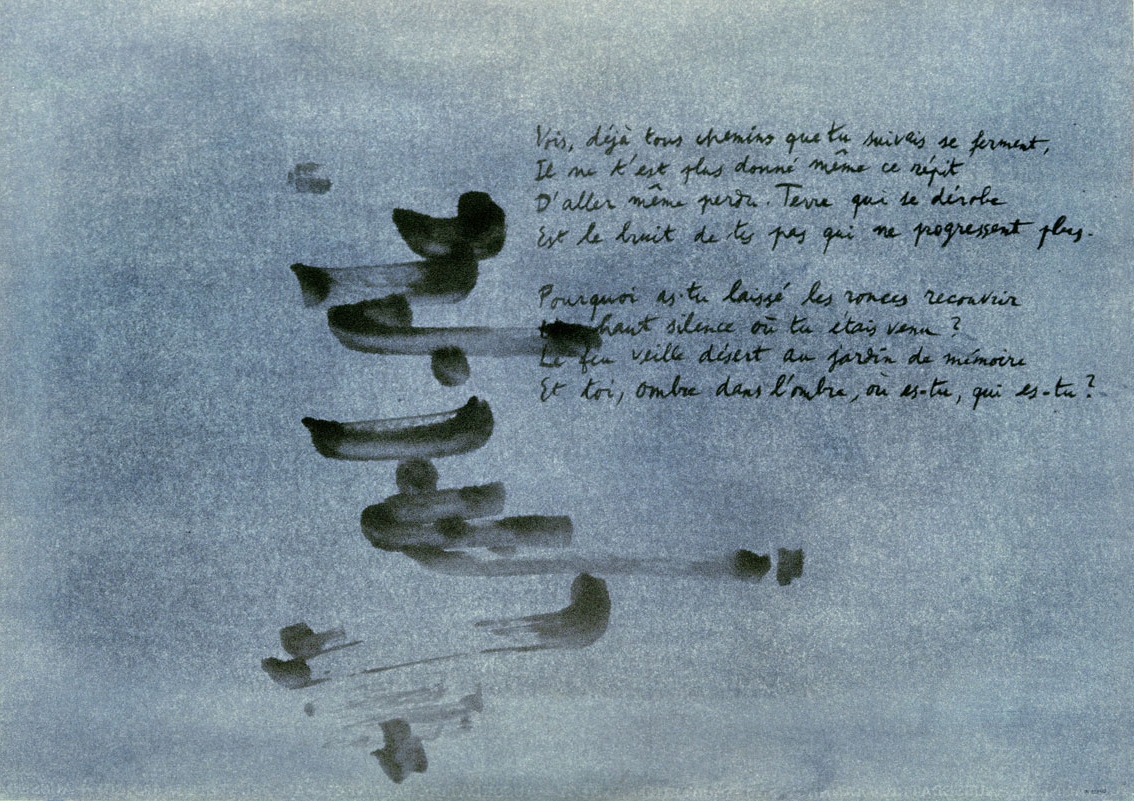 Vois, déjà tous chemins que tu suivais se ferment,
Il ne t'est plus donné même ce répit
D'aller même perdu. Terre qui se dérobe
Est le bruit de tes pas qui ne progressent plus.
Pourquoi as-tu laissé les ronces recouvrir
haut silence où tu étais venu ?
Le feu veille désert au jardin de mémoire
Et toi, ombre dans l'ombre, où es-tu, qui es-tu ?